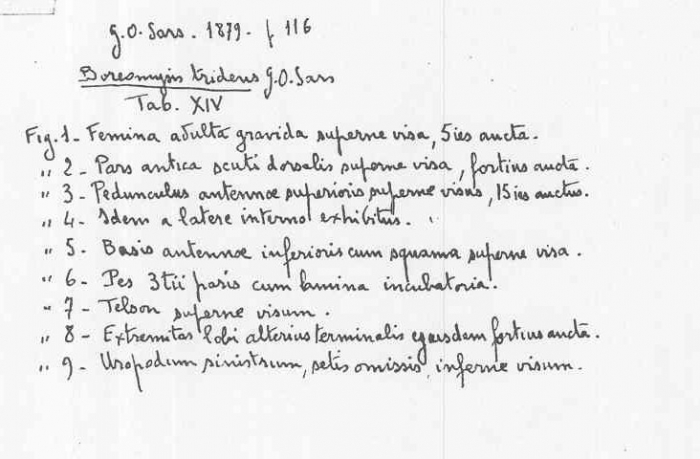 G.O. Sars. 1879. p 116
Boreomysis tridens G.O. Sars
Tab. XIV
Fig. 1 - Femina adulta gravida superne visa, 5ies aucta.
" 2 - Pars antica scuti dorsalis superne visa, fortius aucta.
" 3 - Pedunculus antennœ superioris superne visus, 15ies auctus.
" 4 - Idem a latere interno exhibitus.
" 5 - Basis antennœ inferioris cum squama superne visa.
" 6 - Pes 3tii paris cum lamina incubatoria.
" 7 - Telson superne visum.
" 8 - Extremitas lobi alterius terminalis ejusdem fortius aucta.
" 9 - Uropodum sinistrum, setis omissis, inferne visum.